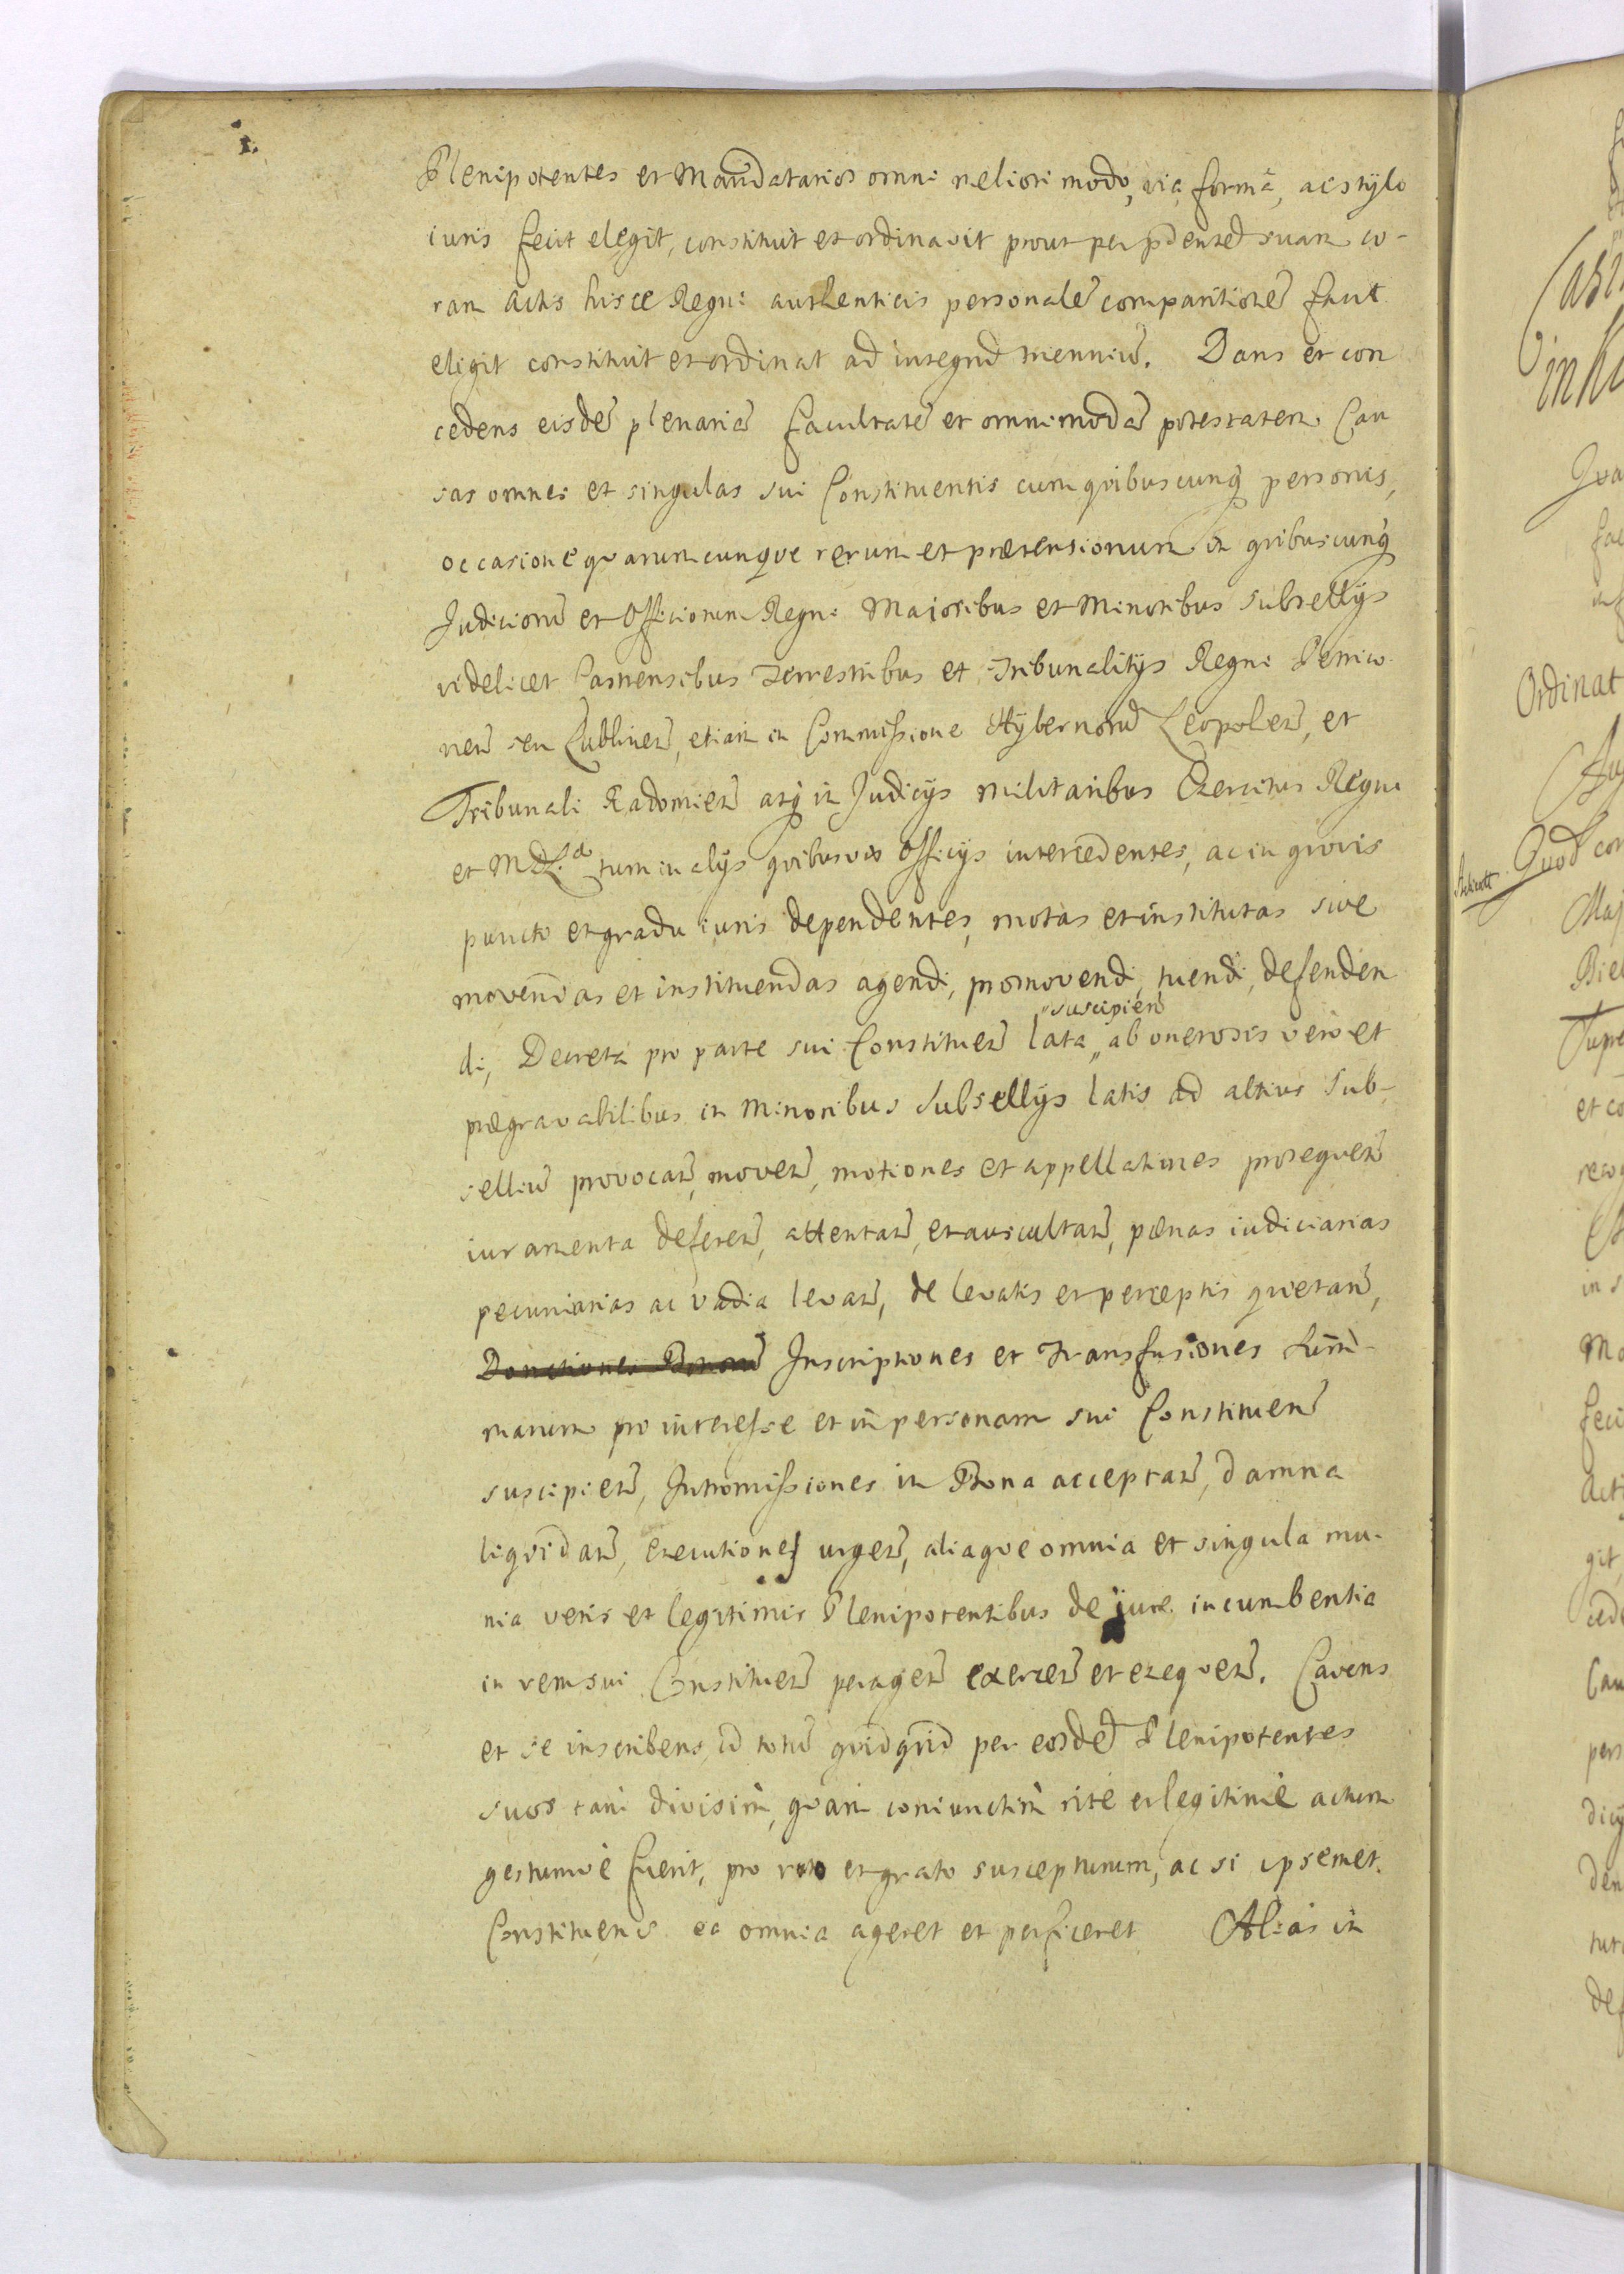 1.
Plenipotentes et Mandatarios omni meliori modo, via, formâ, ac stylo
iuris fecit elegit, constituit et ordinavit prout per pñdentẽ suam co-
ram Actis hisce Regni authenticis personalẽ comparitionẽ facit
eligit constituit et ordinat ad integrũ trienniũ. Dans et con
cedens eisdẽ plenariã facultatẽ et omnimodã potestatem Cau
sas omnes et singulas sui Constituentis cum qvibuscunq personis,
occasione qvarumcunqve rerum et prætensionum in qvibuscunq
Judiciorũ et Officiorum Regni Maioribus et Minoribus Subsellijs
videlicet Castrensibus Terrestribus et Tribunalitijs Regni Petrico
vieñ seu Lublineñ, etiam in Commissione Hybernorũ Leopolieñ, et
Tribunali Radomieñ atq in Judicijs Militaribus Exercitus Regni
et MDL. tum in alijs qvibusvis Officijs intercedentes, ac in qvovis
puncto et gradu iuris dependentes, motas et institutas sive
movendas et instituendas agendi, promovendi, tuendi, defenden
suscipieñ
di, Decreta pro parte sui Constitueñ lata „ ab onerosis verò et
prægravabilibus in Minoribus Subsellijs latis ad altius Sub-
selliũ provocañ, moveñ, motiones et appellationes proseqveñ
iuramenta defereñ, attentañ, et auscultañ, pœnas iudiciarias
pecuniarias ac vadia levañ, de levatis et perceptis qvietañ,
Donationes Bonorũ Inscriptiones et Transfusiones Sum̃-
marum pro interesse et in personam sui Constitueñ
suscipieñ, Intromissiones in Bona acceptañ, damna
liqvidañ, executiones urgeñ, aliaqve omnia et singula mu-
nia veris et legitimis Plenipotentibus de iure incumbentia
in rem sui Constitueñ perageñ exerceñ et exeqveñ. Cavens
et se inscribens id totũ qvidqvid per eosdẽ Plenipotentes
suos tam divisim, qvam coniunctim ritè et legitimè actum
gestumvè fuerit, pro rato et grato suscepturum, ac si ipsemet
Constituens ea omnia ageret et perficeret Aliàs in